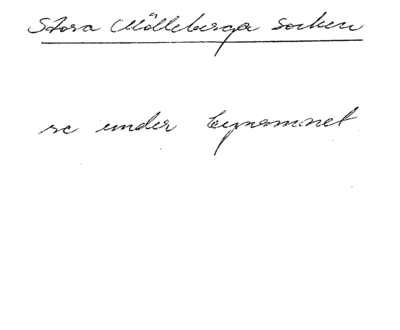 Stora Mölleberga socken
se under bynamnet